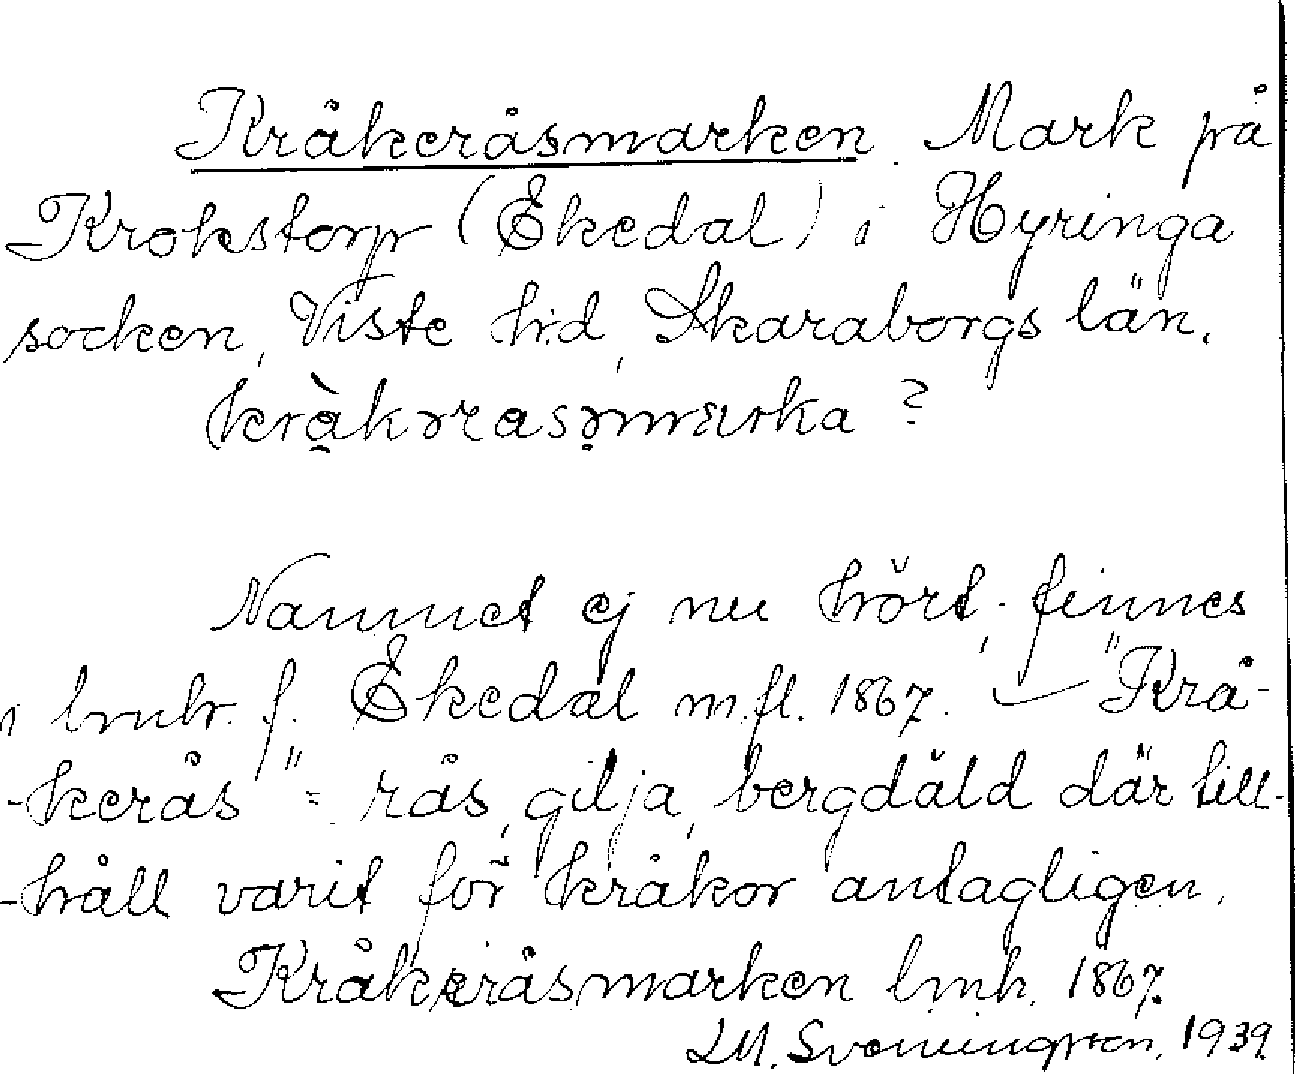 Kråkeråsmarken. Mark på
Krokstorp (Ekedal) i Hyringa
socken, Viste hd, Skaraborgs län.
kràkərasəmarka ?
Namnet ej nu hört; finnes
i lmh. f. Ekedal m.fl. 1867. — "Krå-
-kerås" = rås, gilja, bergdäld där till-
-håll varit för kråkor antagligen.
Kråkeråsmarken lmh. 1867.
1939.